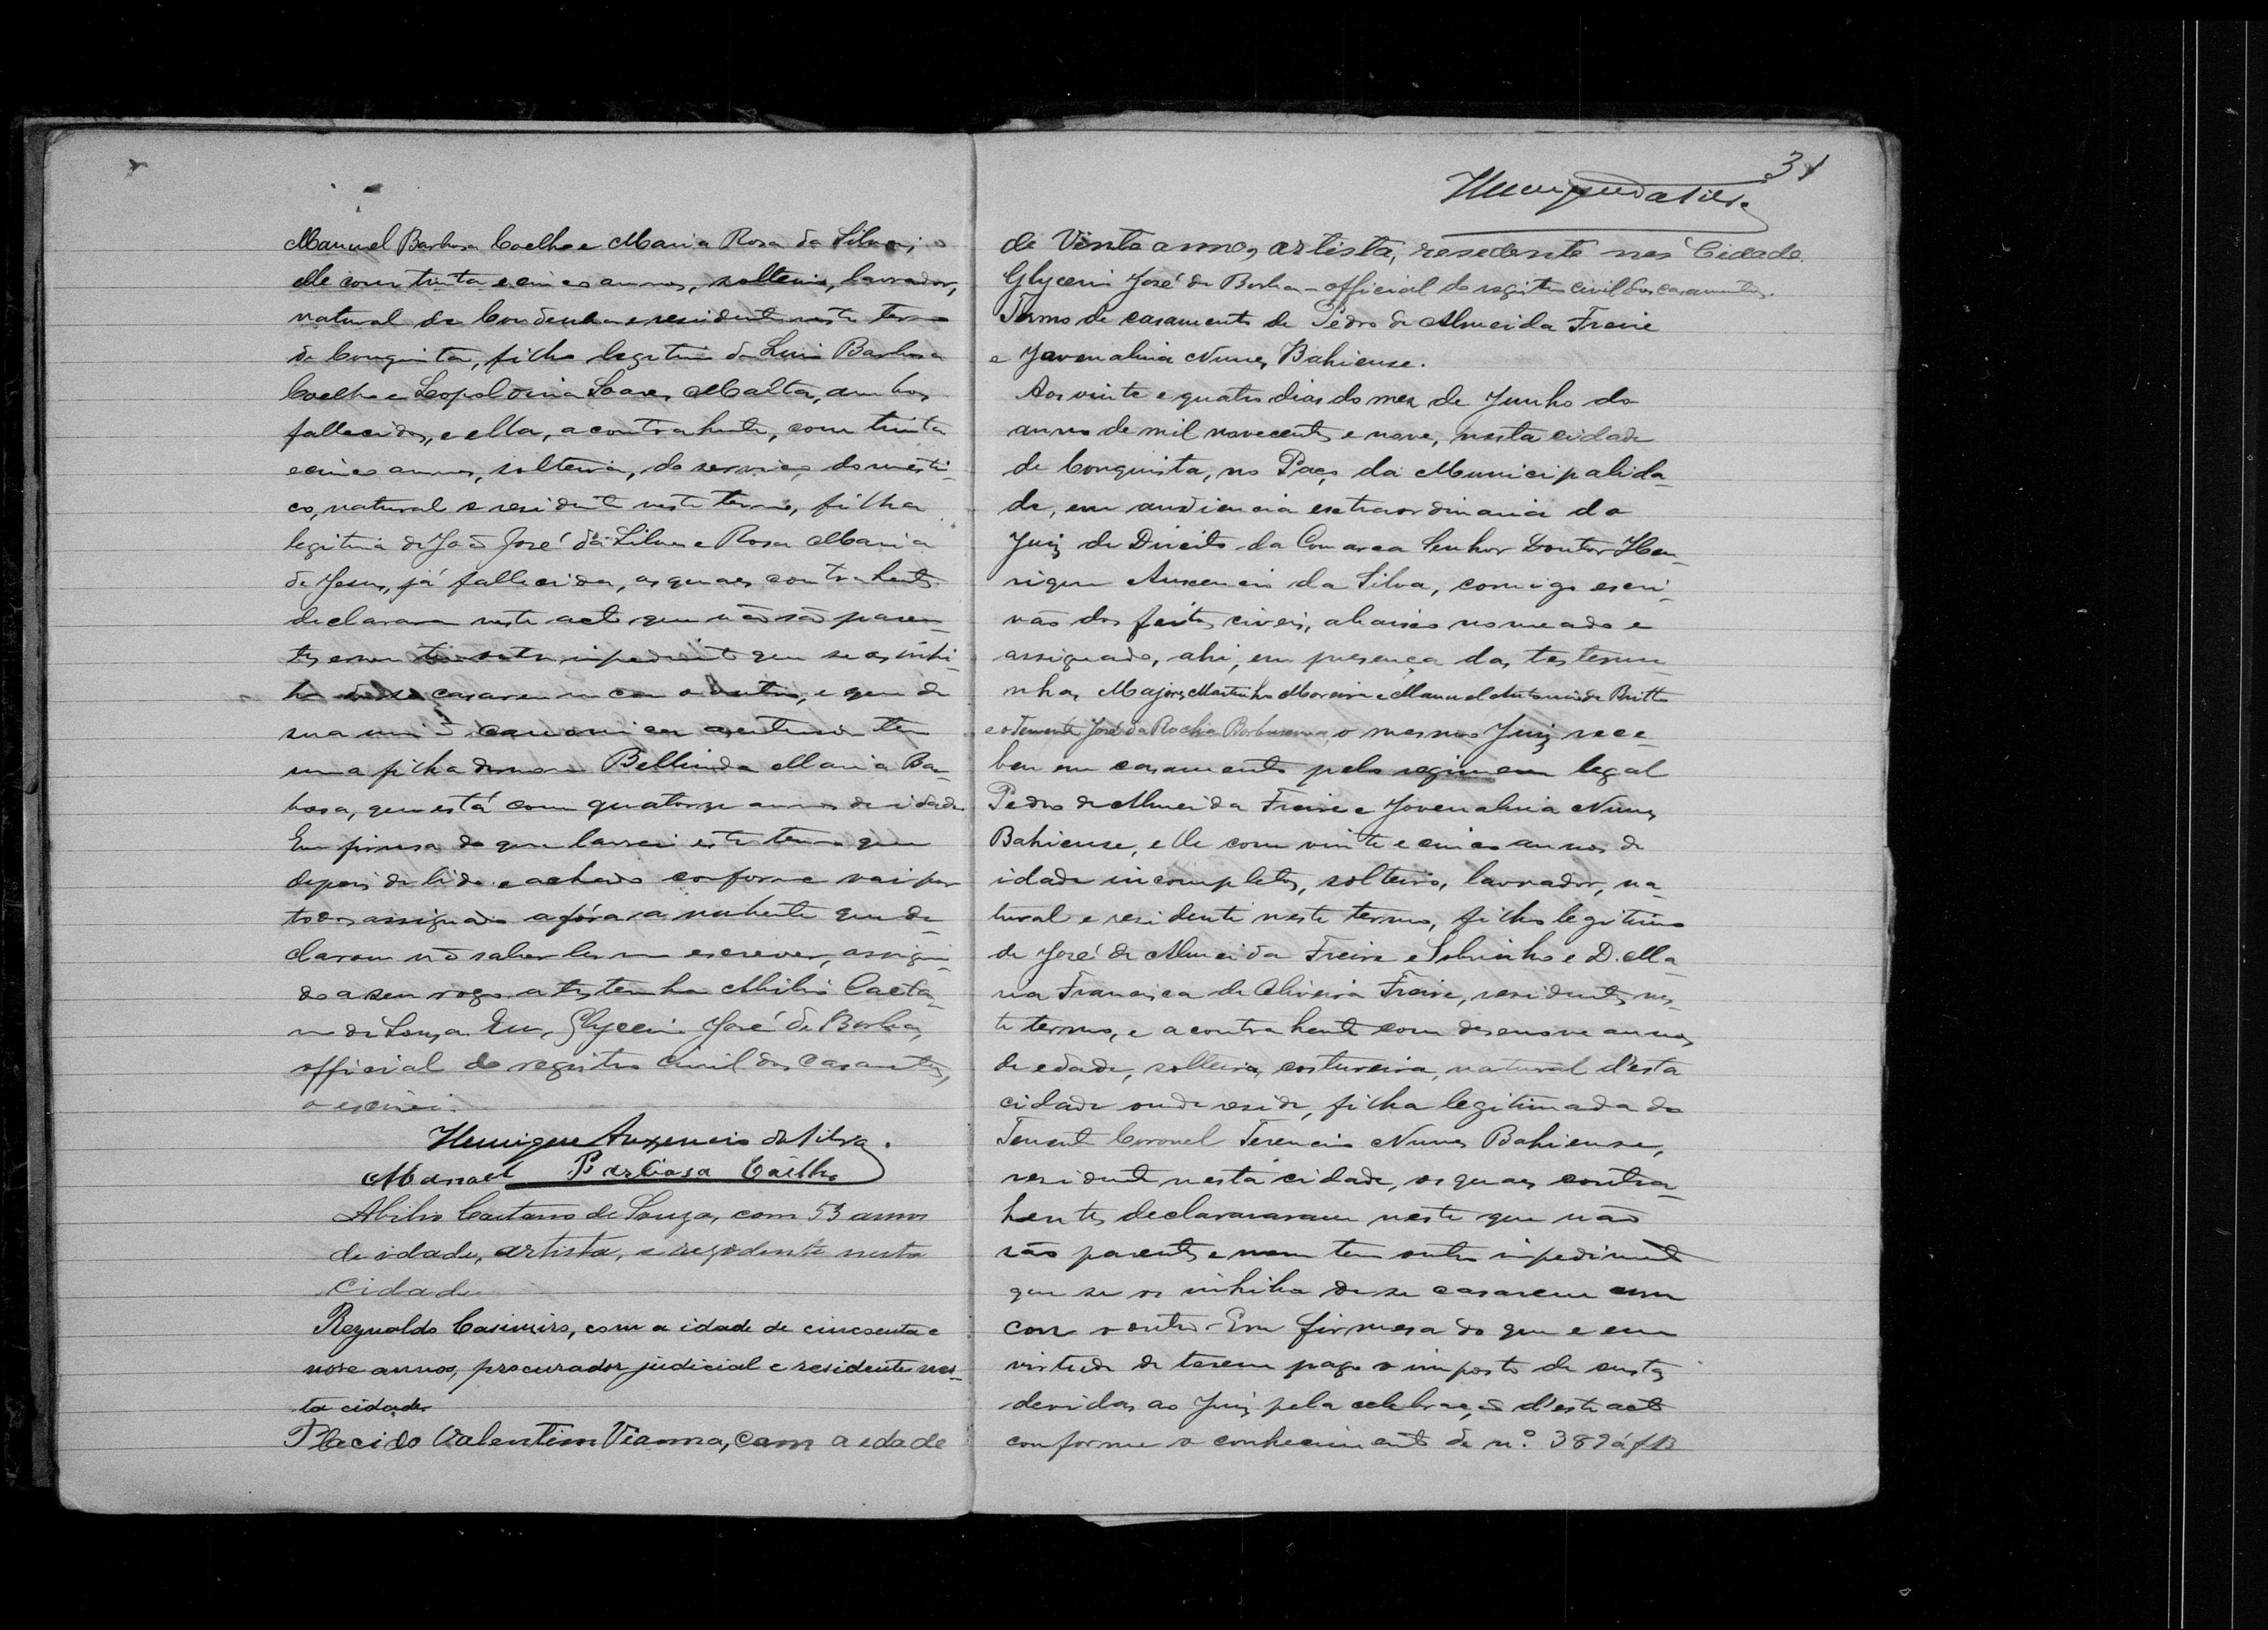 Manuel Barbosa Coelho e Maria Rosa da Silva;
elle com trinta e cinco annos, solteiro, lavrador,
natural de Condeuba e residente neste termo
de Conquista, filho legitimo de Luis Barbosa
Coelho e Leopoldina Soares Malta, ambos
fallecidos, e ella, a contrahente, com trinta
e cinco annos, solteira, do serviço domesti-
co, natural e residente neste termo, filha
legitima de João José da Silva e Rosa Maria
de Jesus, já fallecida, os quaes contrahentes
declararam neste acto que não são paren-
tes e nem tem outro impedimento que se os inhi-
ba de se casarem um com o outro, e que de
sua união canonica anterior tem
uma filha de nome Bellinda Maria Bar-
bosa, que está com quatorze annos de idade
Em firmesa do que lavrei este termo que
depois de lido e achado conforme vai por
todos assignado a fóra a nubente que de-
clarou não saber ler nem escrever, assignan-
do a seu rogo a testemunha Abilio Caeta-
no de Souza. Eu, Glycerio José da Borba,
official do registro civil dos casamentos,
o escrevi.
Henrique Auxencio da Silva.
Manoel Barbosa Coelho
Abilio Caetano de Souza, com 53 annos
de idade, artista, e resedente nesta
Cidade
Reynaldo Casimiro, com a idade de cincoenta e
nove annos, procurador judicial e residente nes-
ta cidade
Placido Valentim Vianna, com a edade
31
Henrique da Silva
de Vinte annos, artista, resedente nes Cidade.
Glycerio José da Borba - official do registro civil dos casamentos.
Termo de casamento de Pedro de Almeida Freire
e Jovenalina Nunes Bahiense.
Aos vinte e quatro dias do mez de Junho do
anno de mil novecentos e nove, nesta cidade
de Conquista, no Paço da Municipalida-
de, em audiencia extraordinaria do
Juiz de Direito da Comarca Senhor Doutor Hen-
rique Auxencio da Silva, comigo escri-
vão dos feitos civeis, abaixo nomeado e
assignado, ahi, em presença das testemu-
nhas, Majores Martinho Moreira e Manuel Antonio de Britto
e o Tenente José da Rocha, o mesmo Juiz rece-
beu em casamento pelo regimem legal
Pedro de Almeida Freire e Jovenalina Nunes
Bahiense, elle com vinte e cinco annos de
idade incompletos, solteiro, lavrador, na-
tural e residente neste termo, filho legitimo
de José de Almeida Freire e Sobrinho e D. Ma-
ria Francisca de Oliveira Freire, residentes nes-
te termo, e a contrahente com desenove annos
de edade, solteira, costureira, natural d'esta
cidade onde reside, filha legitimada do
Tenente Coronel Terencio Nunes Bahiense,
residente nesta cidade, os quaes contra-
hentes declarararam neste que não
são parentes e nem tem outro impedimento
que se os inhiba de se casarem um
com o outro - Em firmesa do que e em
virtude de terem pago o imposto de custas
devidas ao Juiz pela celebração d'este acto
conforme o conhecimento de nº 389 á f 13